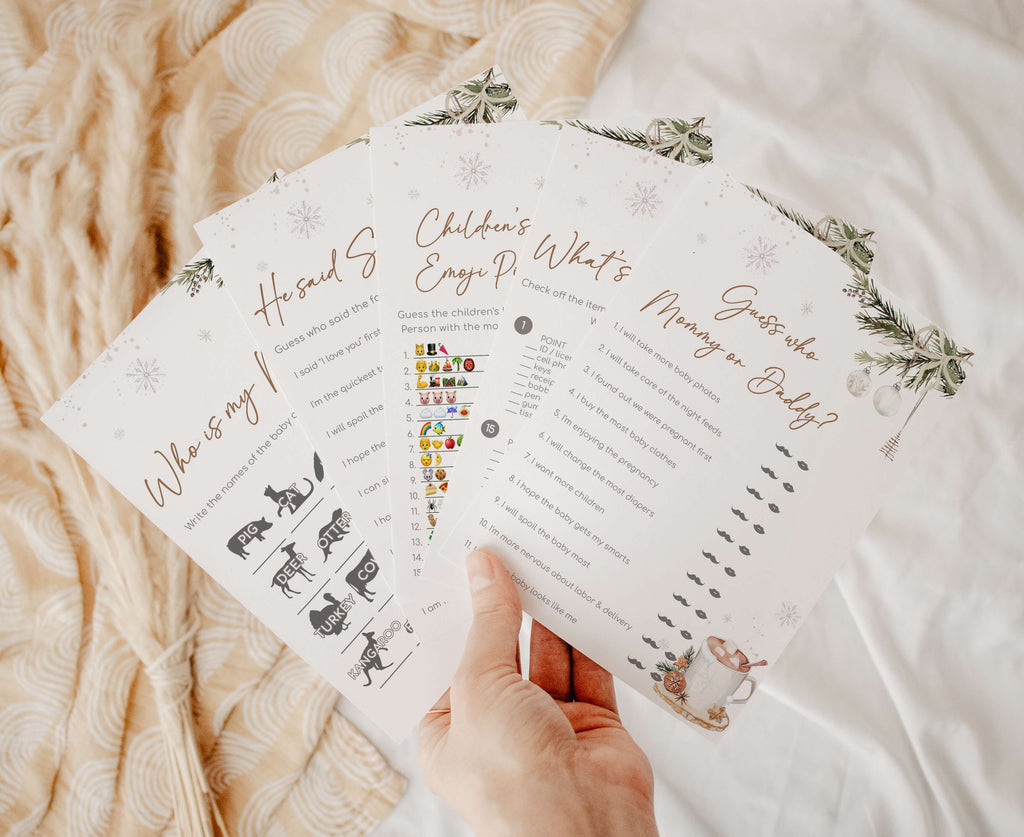 Who is my
Write the names of the baby
PIG
CAT
DEER
OTTER
TURKEY
KANGAROO
He said
Guess who said the
I said 'I love you' first
I'm the quickest
I will spoil the
I hope the
I can
I
I am
Children's
Emoji
Guess the children's
Person with the
1.
2.
3.
4.
5.
6.
7.
8.
9.
10.
11.
12.
13.
14.
What's
Check off the
1
POINT
ID /
cell
keys
pen
15
Guess who
Mommy or Daddy?
1. I will take more baby photos
2. I will take care of the night feeds
3. I found out we were pregnant first
4. I buy the most baby clothes
5. I'm enjoying the pregnancy
6. I will change the most diapers
7. I want more children
8. I hope the baby gets my smarts
9. I will spoil the baby most
10. I'm more nervous about labor & delivery
11. baby looks like me